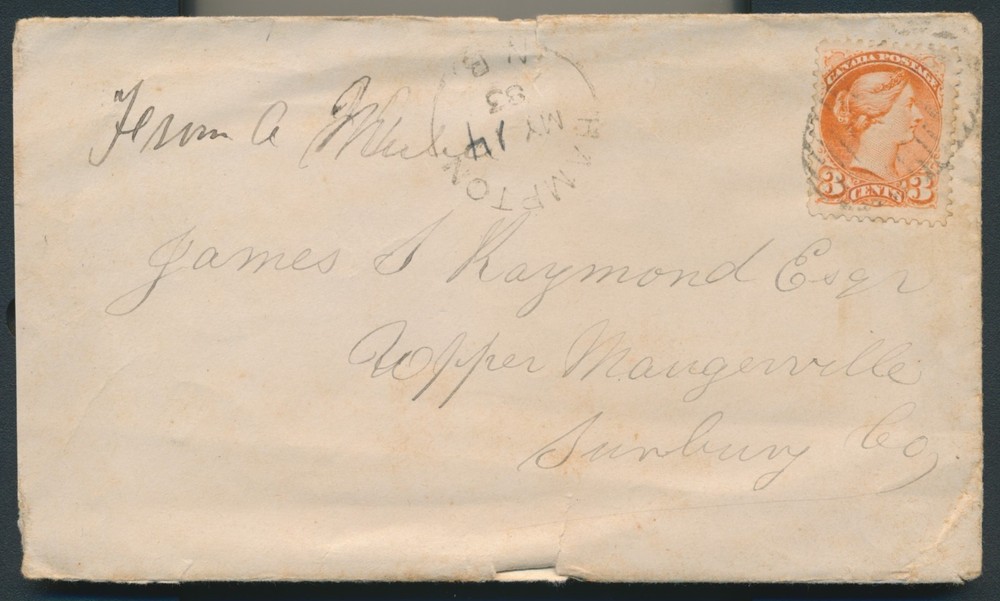 CANADA POSTAGE
3 CENTS 3
N B
83
MY 14
HAMPTON
From A
James S Raymond Esqr
Upper Maugerville
Sunbury Co,